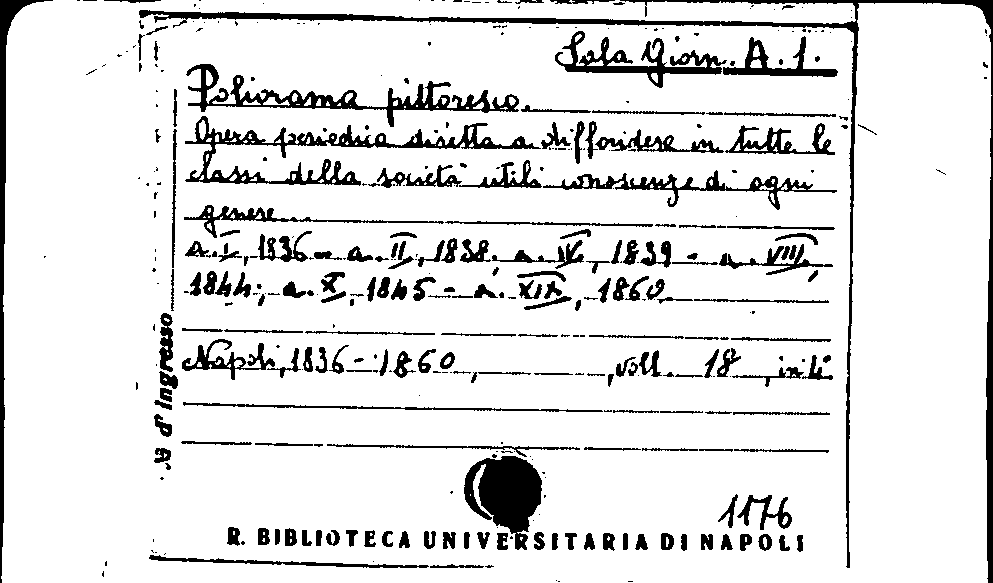 Sala Giorn. A. 1.
Poliorama pittoresco.
Opera periodica diretta a diffondere in tutte le
classi della società utili conoscenze di ogni
genere...
a. I, 1836 - a. II, 1838; a. IV, 1839 - a. VIII,
1844; a. X, 1845 - a. XIX, 1860.
Napoli, 1836-1860, , voll. 18, in 4°.
N d'ingresso
1176
R. BIBLIOTECA UNIVERSITARIA DI NAPOLI